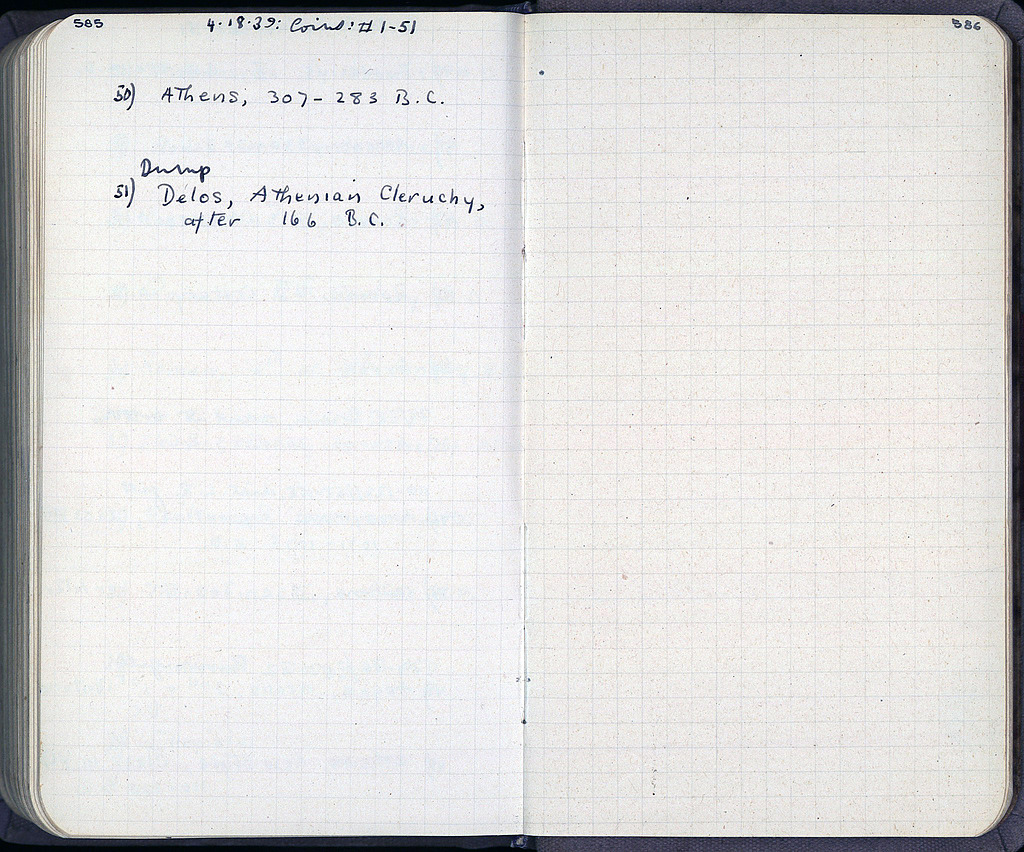 585
4·18·39: Coins: # 1-51
50) Athens, 307-283 B.C.
Dump
51) Delos, Athenian Cleruchy,
after 166 B.C.
586